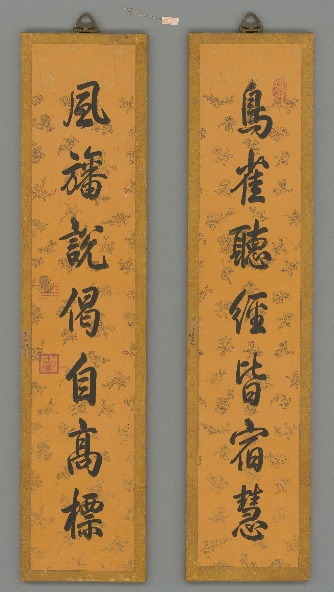 鳥雀聽經皆宿慧
風旛說偈自高標